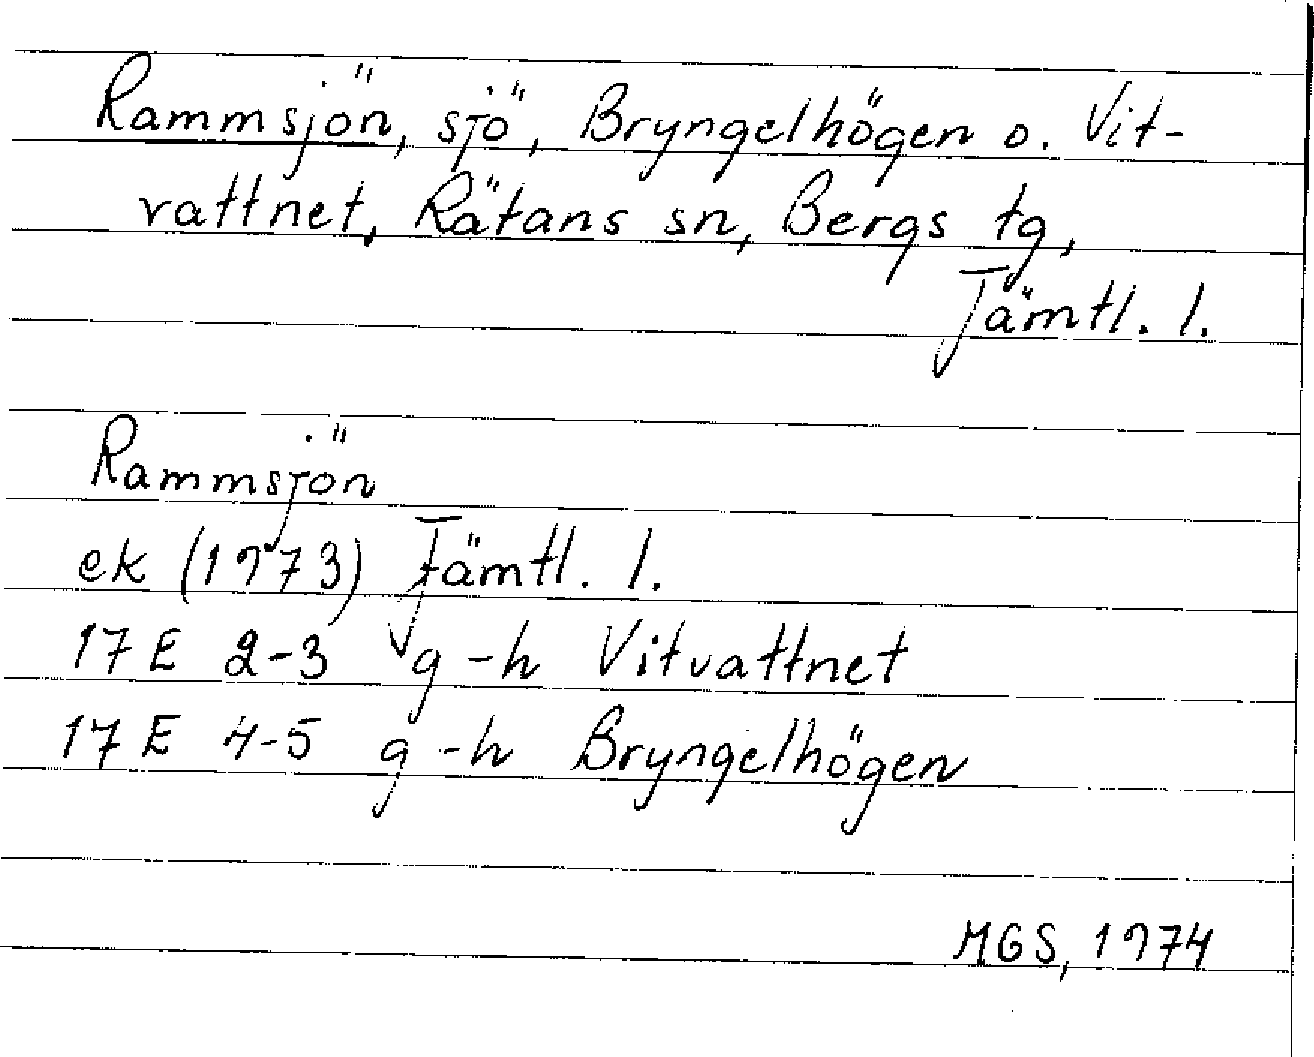 Rammsjön, sjö, Bryngelhögen o. Vit-
vattnet, Rätans sn, Bergs tg,
Jämtl. l.
Rammsjön
ek (1973) Jämtl. l.
17 E 2-3 g-h Vitvattnet
17 E 4-5 g-h Bryngelhögen
MGS, 1974